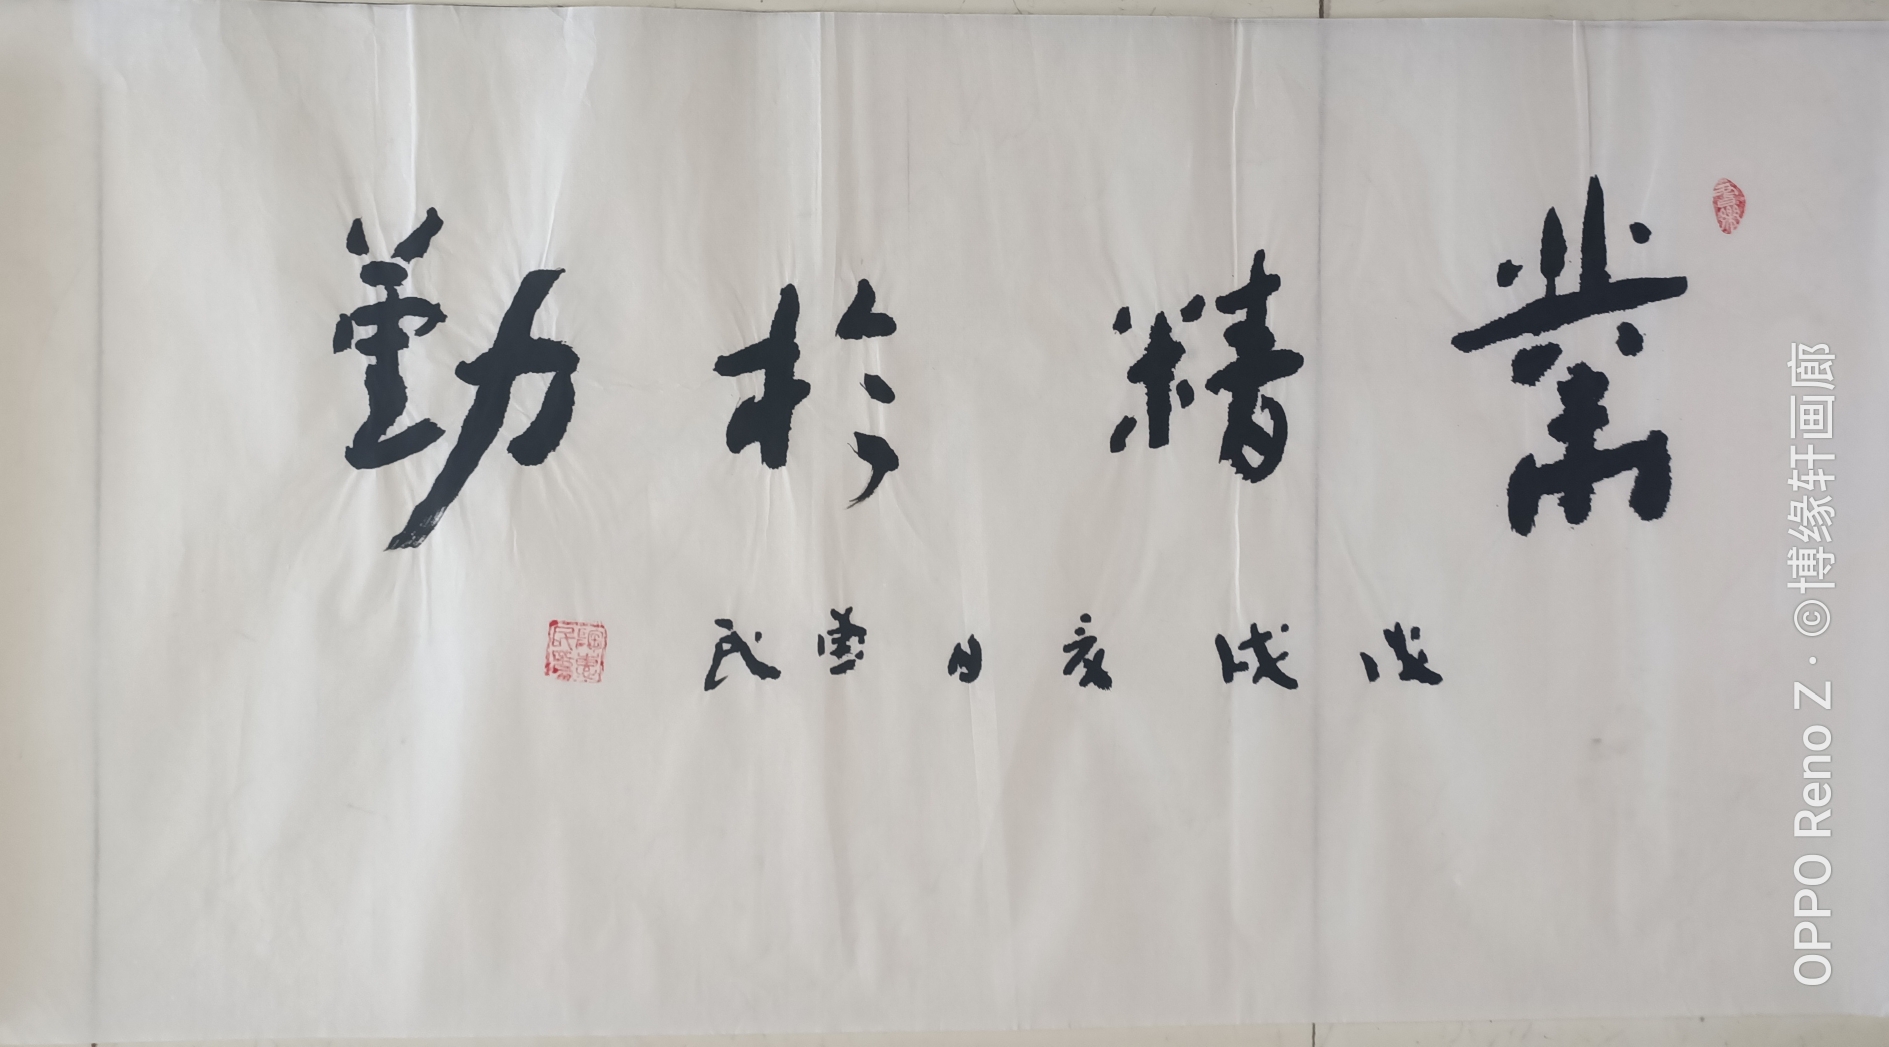 業精於勤
戊戌亥日
民
OPPO Reno Z · ©博缘轩画廊